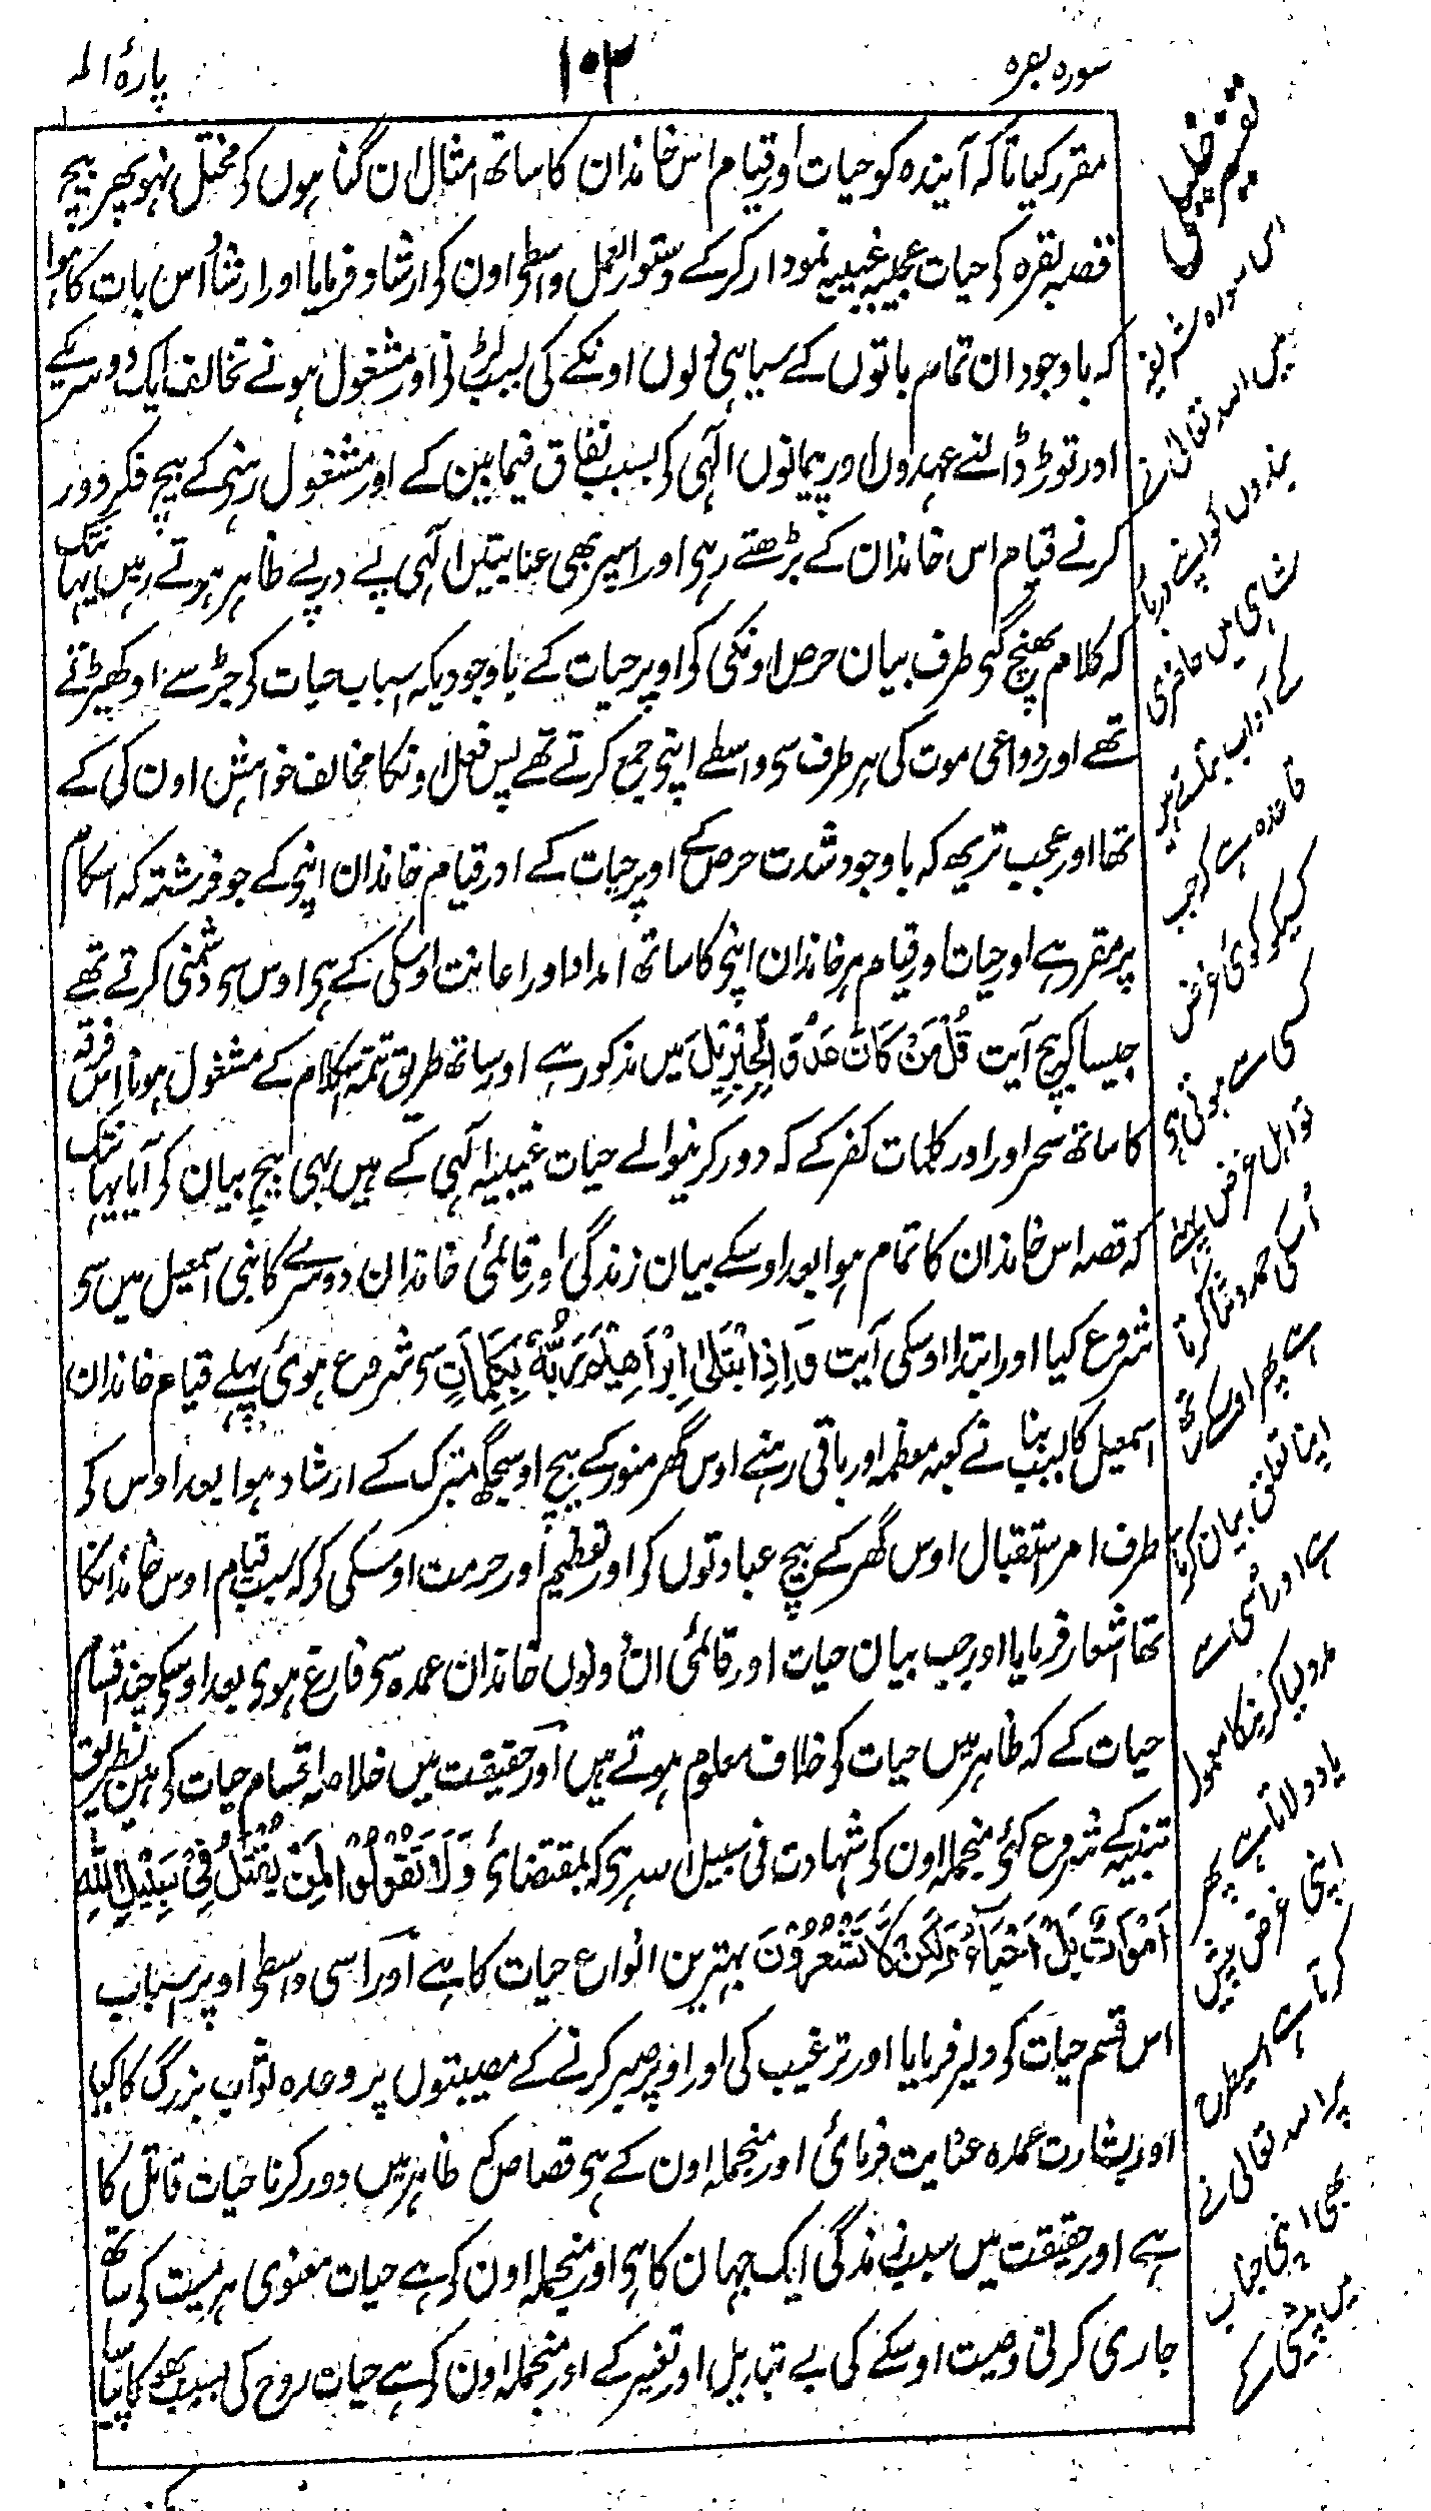 سورہ بقرہ
۱۰۳
پارۂ الم
مقرر کیا تاکہ آیندہ کو حیات اور قیام اس خاندان کا ساتھ امثال ان گناہوں کی مختل نہو پھر بیچ
قصہ بقرہ کی حیات عجیبہ غیبیہ نمودار کر کے دستور العمل واسطی اون کی ارشاد فرمایا اور ارشاد اس بات کا ہوا
کہ باوجود ان تمام باتوں کے سیاہی دلوں اونکے کی بسبب لڑنی اور مشغول ہونے تخالف ایک دوسریکے
اور توڑ ڈالنے عہدوں اور پیمانوں الٰہی کی بسبب نفاق فیمابین کے اور مشغول رہنی کے بیچ فکر دور
کرنے قیام اس خاندان کے بڑھتے رہی اور اسپر بھی عنایتیں الٰہی پے درپے ظاہر ہوتے رہیں یہانتک
کہ کلام پھنچ گئی طرف بیان حرص اونکی کو اوپر حیات کے باوجودیکہ اسباب حیات کی جڑ سے اوکھیڑتے
تھے اور دواعی موت کی ہر طرف سی واسطے اپنی جمع کرتے تھے پس فعل اونکا مخالف خواہش اون کی کے
تھا اور عجب تر یھ کہ باوجود شدت حرص کے اوپر حیات کے اور قیام خاندان اپنی کے جو فرشتہ کہ اس کام
پر مقرر ہے اور حیات اور قیام ہر خاندان اپنی کا ساتھ امداد اور اعانت اوسکی کے ہی اوس سی دشمنی کرتے تھے
جیسا کہ بیچ آیت قُلْ مَنْ كَانَ عَدُوًّا لِّجِبْرِيلَ میں مذکور ہے اور ساتھ طریق تتمہ کلام کے مشغول ہونا اس فرقہ
کا ساتھ سحر اور اور کلمات کفر کے کہ دور کرنیوالے حیات غیبیہ الٰہی کے ہیں بھی بیچ بیان کی آیا یہانتک
کہ قصہ اس خاندان کا تمام ہوا بعد اوسکے بیان زندگی اور قائمی خاندان دوسرے کا بنی اسمعیل میں سی
شروع کیا اور ابتدا اوسکی آیت وَاِذِ ابْتَلٰى اِبْرَاهِيْمَ رَبُّهٗ بِكَلِمَاتٍ سی شروع ہوئی پہلے قیام خاندان
اسمعیل کا بسبب بنا نے کعبہ معظمہ اور باقی رہنے اوس گھر منور کے بیچ اوسیجگھ متبرک کے ارشاد ہوا بعد اوس کی
طرف امر استقبال اوس گھر کے بیچ عبادتوں کی اور تعظیم اور حرمت اوسکی کو کہ سبب قیام اوس خاندانکا
تھا اشعار فرمایا اور جب بیان حیات اور قائمی ان دونوں خاندان عمدہ سی فارغ ہوی بعد اوسکی چند اقسام
حیات کے کہ ظاہر میں حیات کو خلاف معلوم ہوتے ہیں اور حقیقت میں خلاصہ اقسام حیات کی ہیں بطریق
تنبیہ کے شروع کئی منجملہ اون کی شہادت فی سبیل اللہ ہی کہ بمقتضائ وَلَا تَقُوْلُوْا لِمَنْ يُّقْتَلُ فِيْ سَبِيْلِ اللّٰهِ
اَمْوَاتٌ بَلْ اَحْيَاءٌ وَّلٰكِنْ لَّا تَشْعُرُوْنَ بہترین انواع حیات کا ہے اور اسی واسطی اوپر اسباب
اس قسم حیات کی دلیر فرمایا اور ترغیب کی اور اوپر صبر کرنے کے مصیبتوں پر وعدہ ثواب بزرگ کا کیا
اور بشارت عمدہ عنایت فرمائی اور منجملہ اون کے ہی قصاص کہ ظاہر میں دور کرنا حیات قاتل کا
ہے اور حقیقت میں سبب زندگی ایک جہان کا ہی اور منجملہ اون کی ہے حیات معنوی ہر میت کی ساتھ
جاری کرنی وصیت اوسکے کی بے تبدیل اور تغیر کے اور منجملہ اون کی ہے حیات روح کی بسبب بھوکا پیاسا
تقسیم ظہری
اس سورہ شریفہ
میں اللہ تعالیٰ نے
بندوں کو اپنے دربار
شاہی میں حاضری
کے آداب بتائے ہیں
قاعدہ ہے کہ جب
کسیکو کوئی غرض
کسی سے ہوتی ہی
تو اہل غرض پہلے
اسکی حمد و ثنا کرتا
ہے پھر اوسکے ساتھ
اپنا تعلق بیان کرتا
ہے اور اسی سے
مدد چاہا کرنیکا معمول
یاد دلاتا ہے پھر
اپنی غرض پیش
کرتا ہے اسیطرح
پر اللہ تعالیٰ نے
بھی اپنی جناب
میں پیشی کے